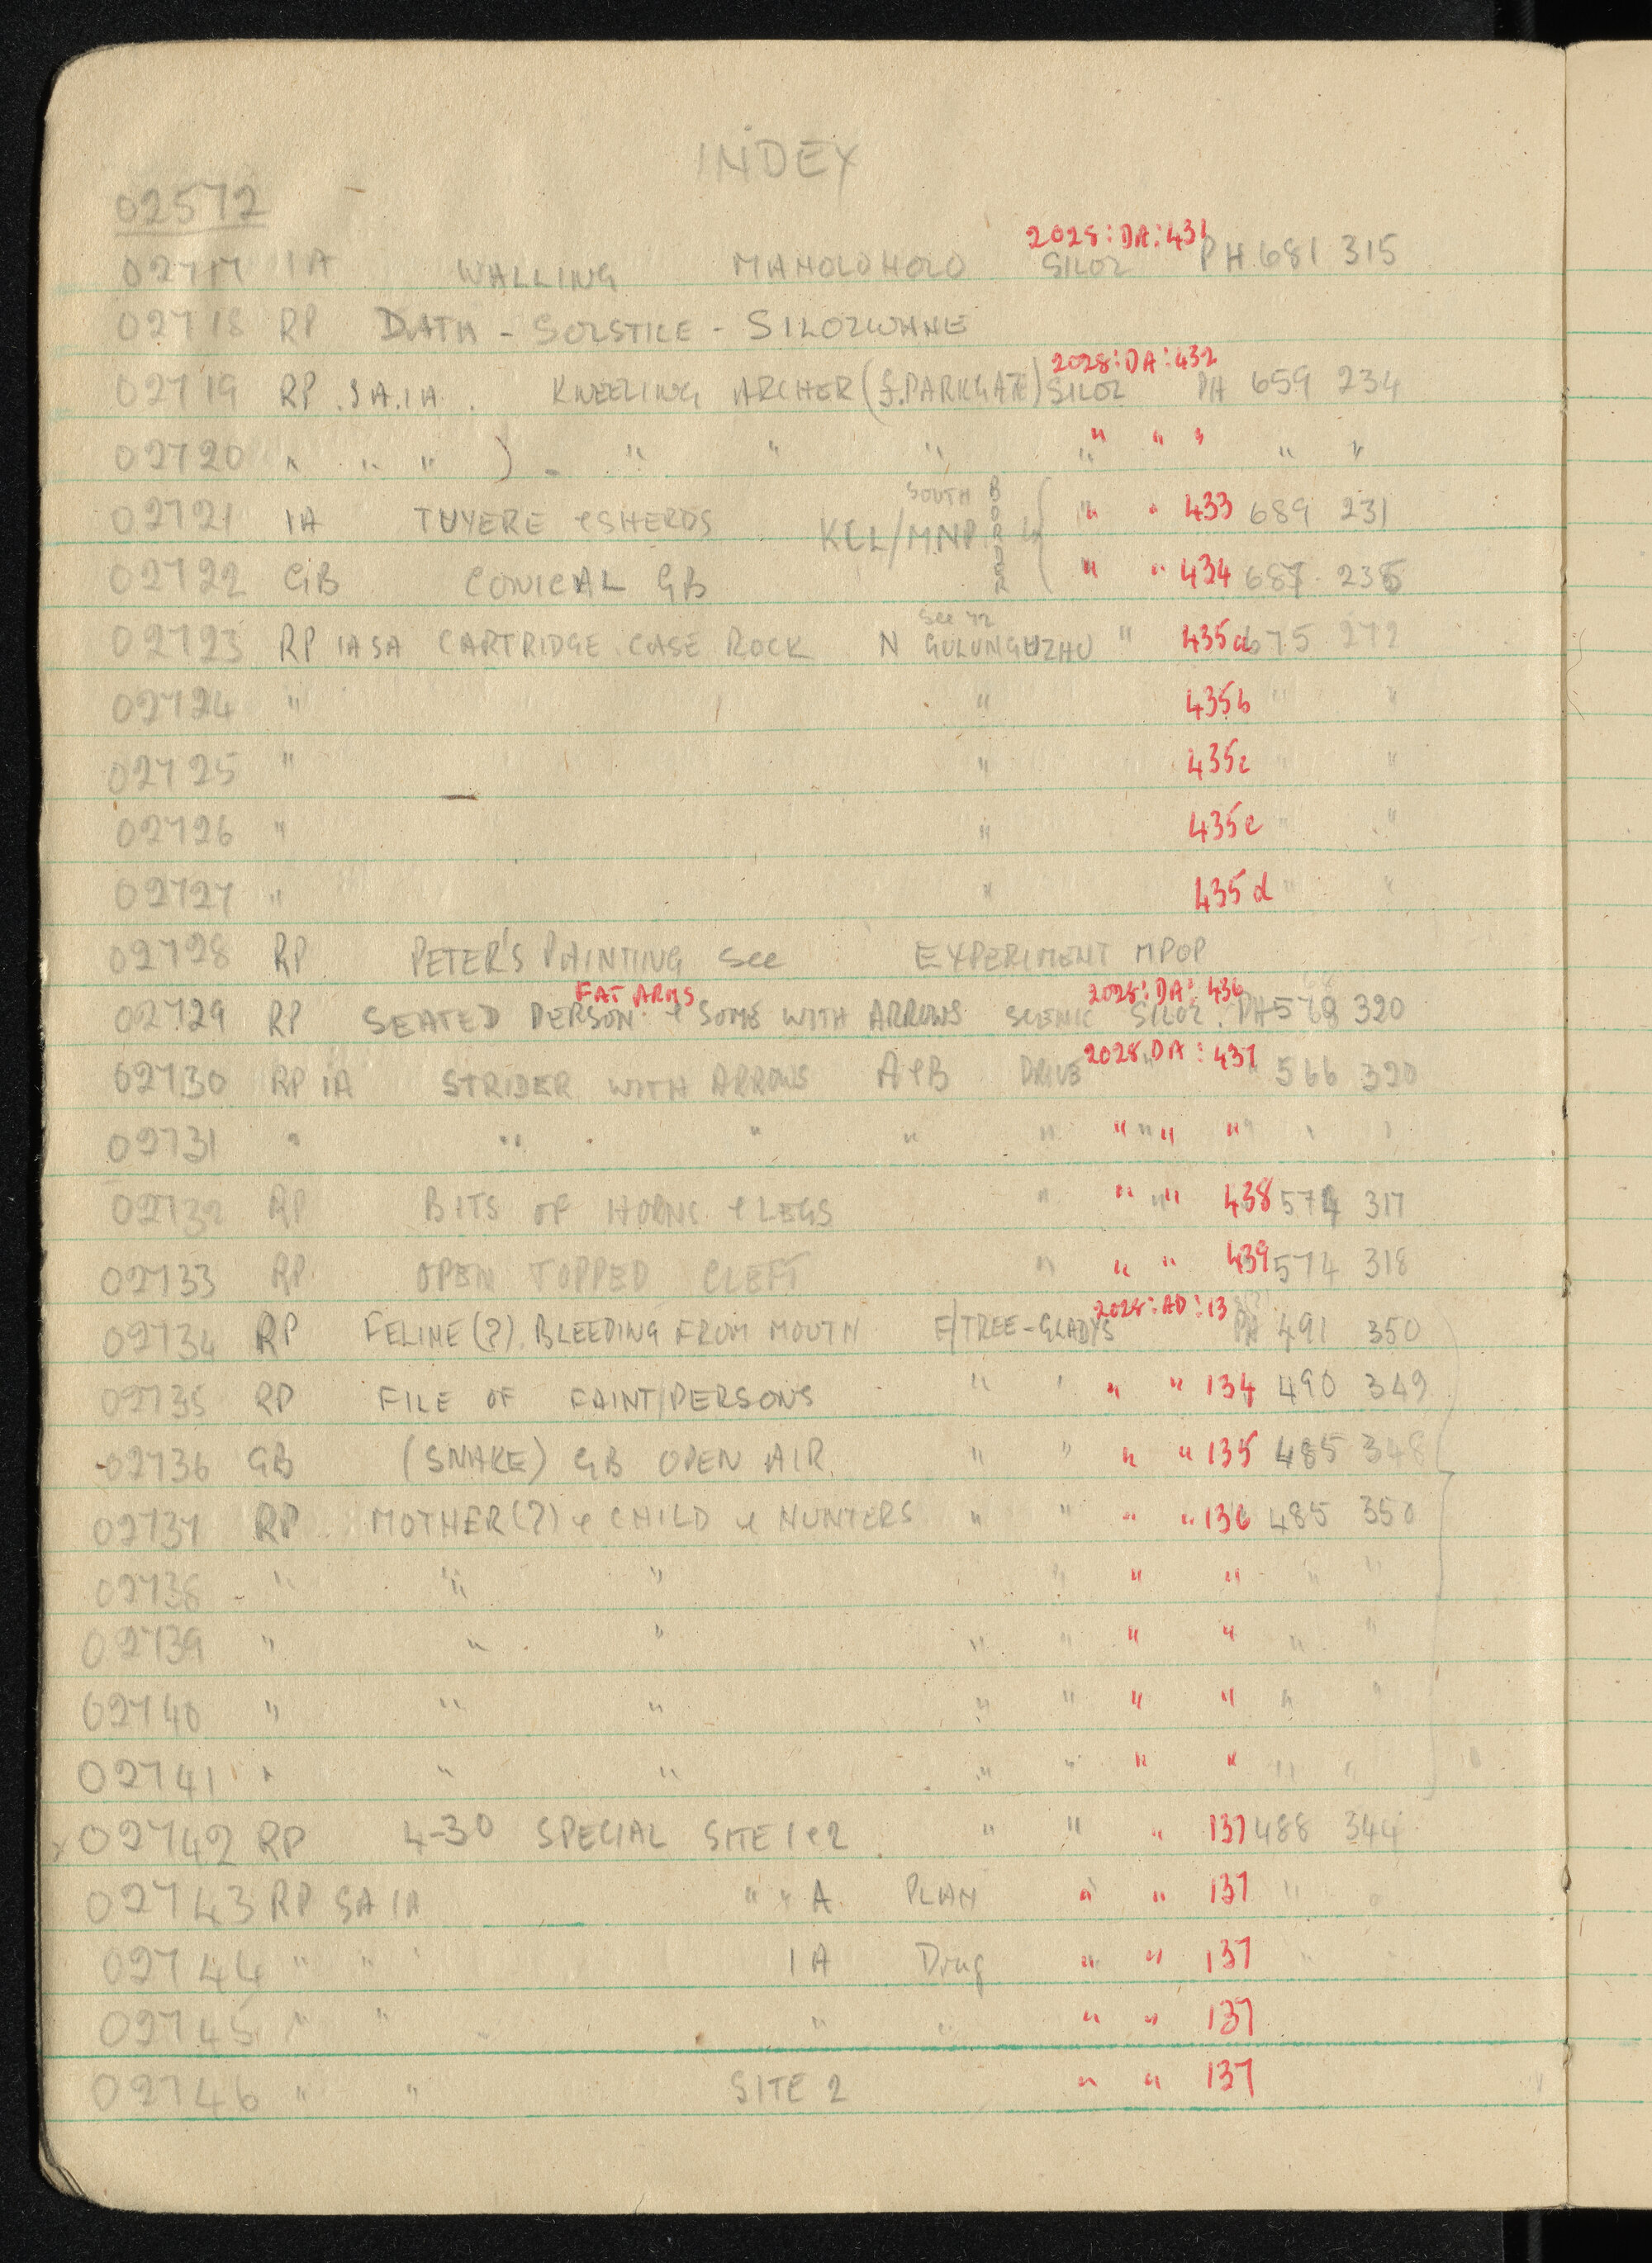 INDEX
02572
2028:DA:431
02717 IA WALLING MAHOLOHOLO SILOZ PH 681 315
02718 RP DATA - SOLSTICE - SILOZWANE
2028:DA:432
02719 RP .SA.IA. KNEELING ARCHER (f.PARKGATE) SILOZ PH 659 234
02720 " " " ) - " " " " " " " " "
SOUTH BORDER
02721 IA TUYERE & SHERDS KCL/MNP " " 433 689 231
02722 GB CONICAL GB " " 434 687 235
See 72
02723 RP IASA CARTRIDGE CASE ROCK N GULUNGUZHU " 435a 675 272
02724 " " 435b " "
02725 " " 435c " "
02726 " " 435c " "
02727 " " 435d " "
02728 RP PETER'S PAINTING See EXPERIMENT MPOP
FAT ARMS 2028:DA:436
02729 RP SEATED PERSON & SOME WITH ARROWS SCENIC SILOZ. PH 568 320
2028:DA:437
02730 RP IA STRIDER WITH ARROWS A&B DRIVE " 566 320
02731 " " " " " " " " " " "
02732 RP BITS OF HORNS & LEGS " " " " 438 574 317
02733 RP OPEN TOPPED CLEFT " " " 439 574 318
2028:AD:13
02734 RP FELINE(?). BLEEDING FROM MOUTH F/TREE-GLADYS PH 491 350
02735 RP FILE OF FAINT/PERSONS " " " " 134 490 349
02736 GB (SNAKE) GB OPEN AIR. " " " " 135 485 348
02737 RP MOTHER(?) & CHILD & HUNTERS " " " " 136 485 350
02738 - " " " " " " " "
02739 " " " " " " " " "
02740 " " " " " " " " "
02741 " " " " " " " " "
x 02742 RP 4-30 SPECIAL SITE 1&2. " " " 137 488 344
02743 RP SA IA " " A. PLAN " " 137 " "
02744 " " " 1A Drng " " 137 " "
02745 " " " " " " 137
02746 " " SITE 2 " " 137